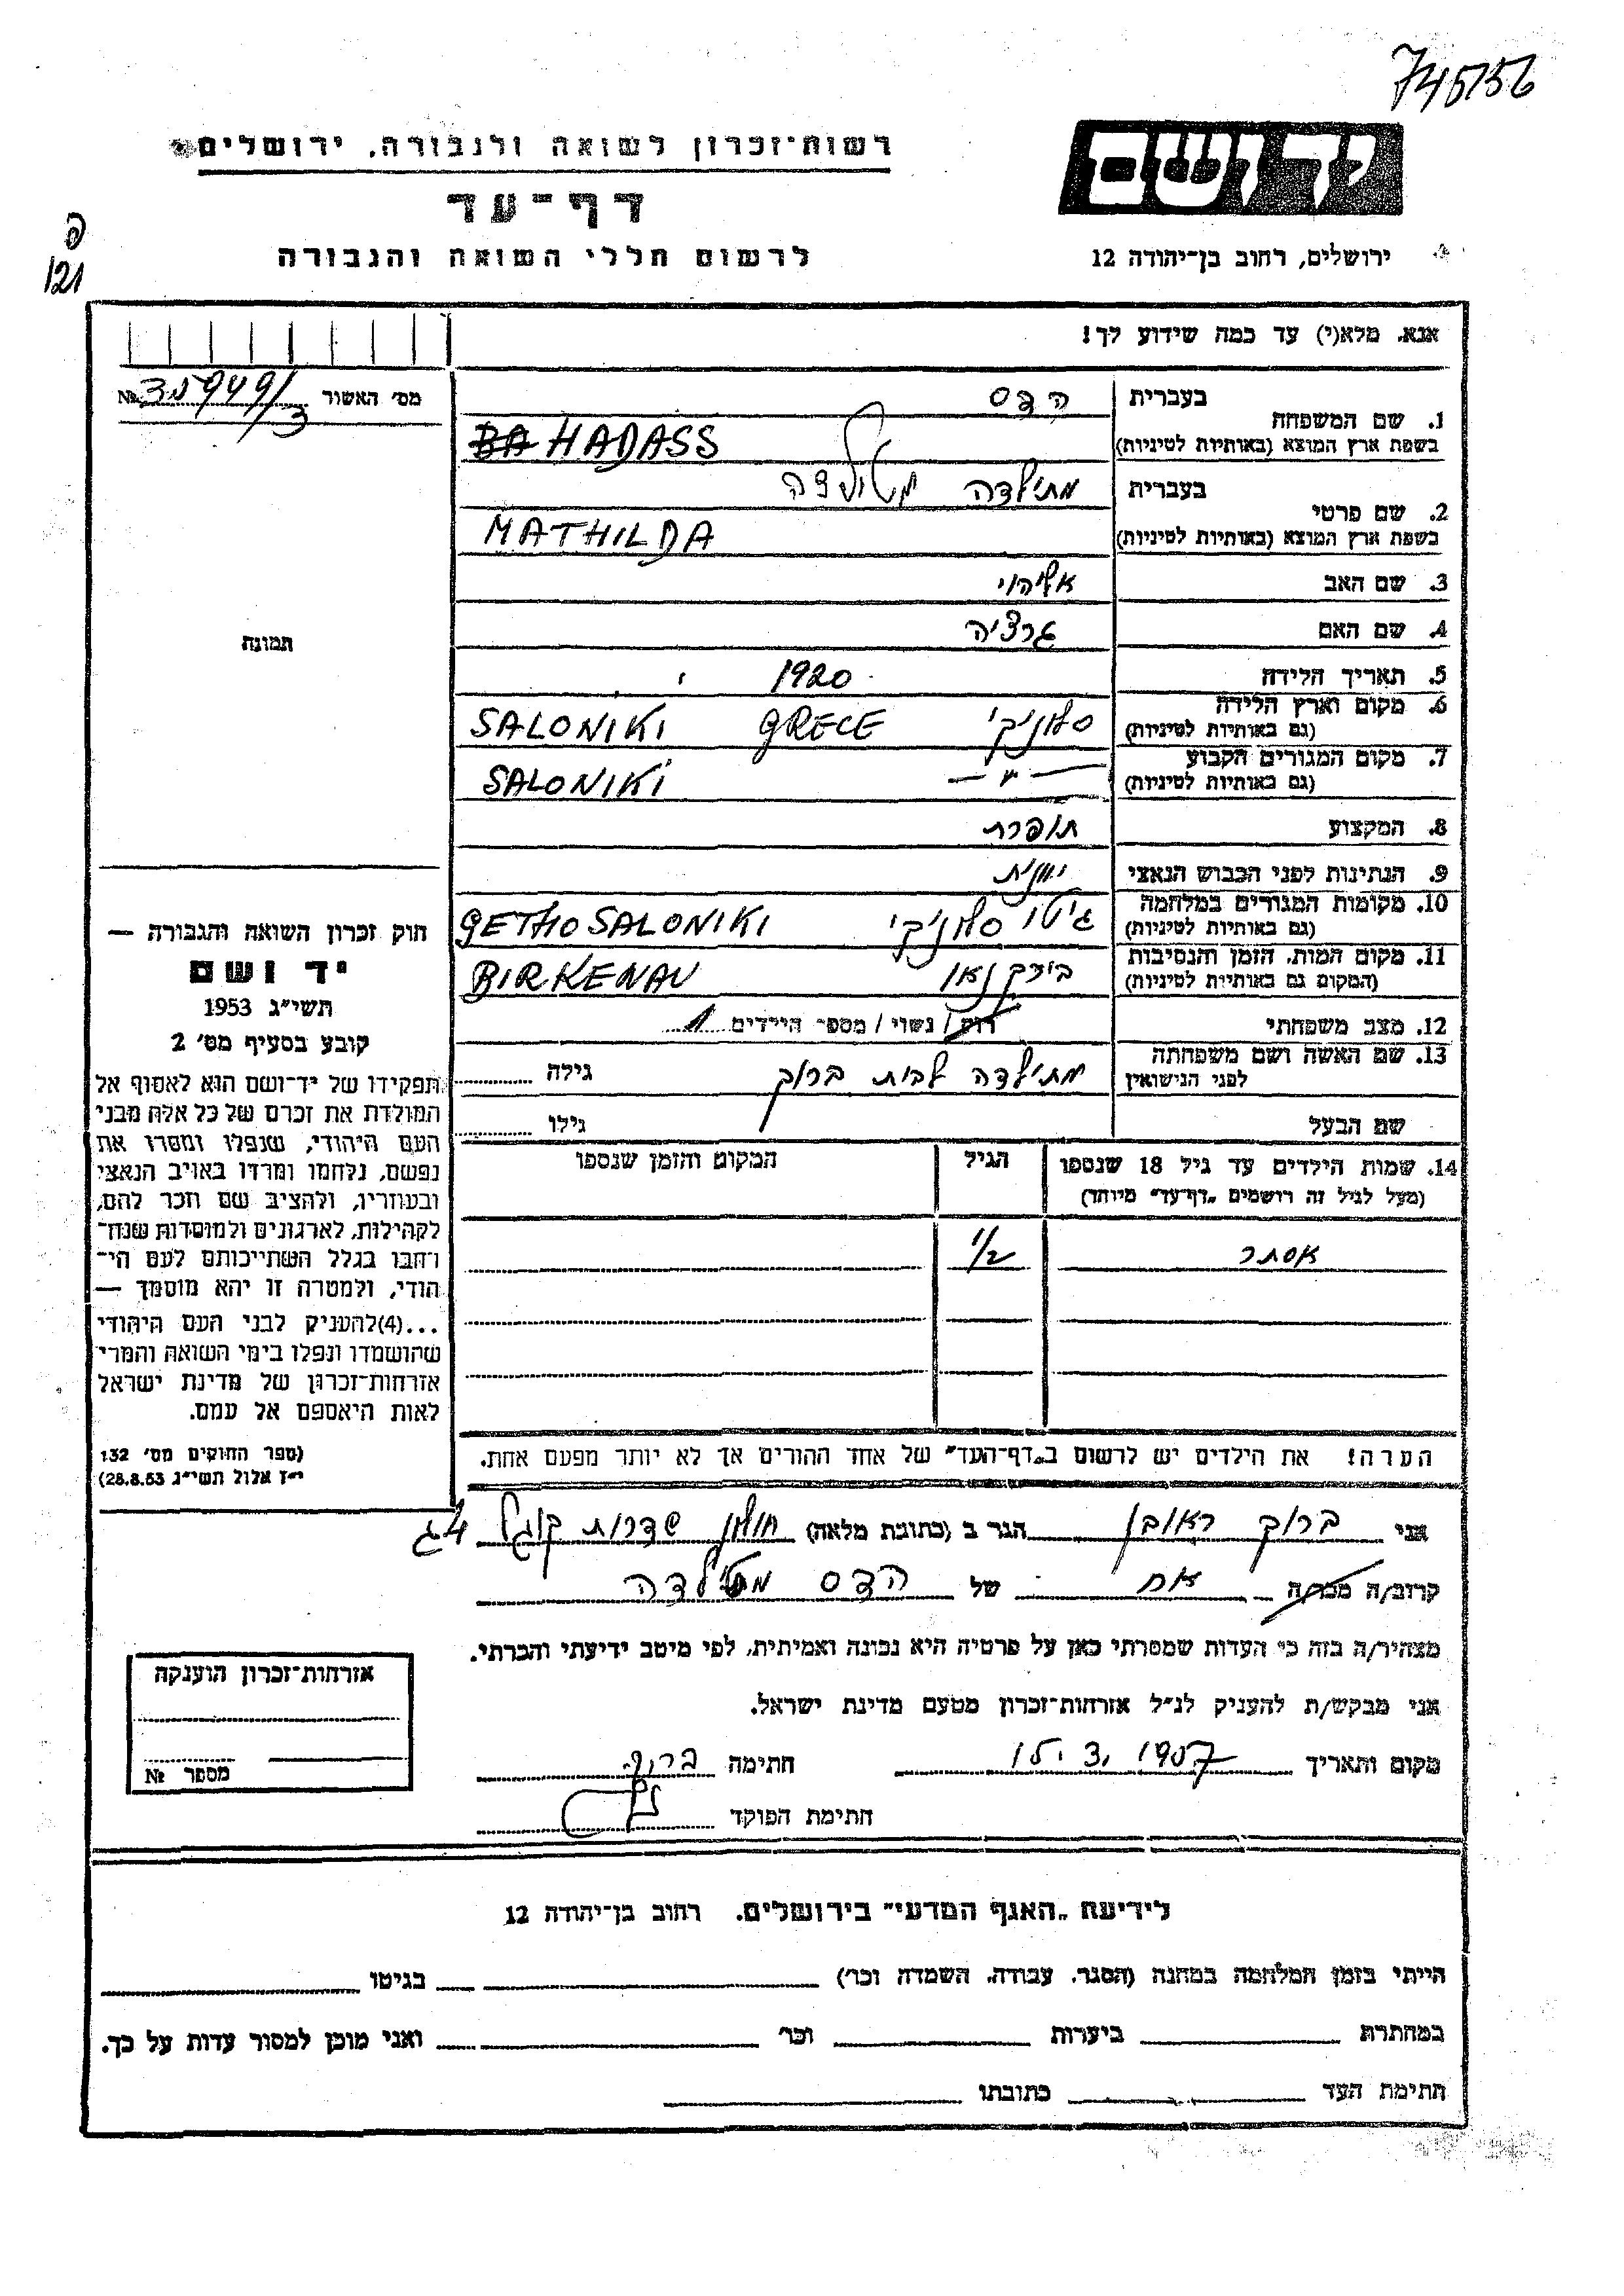 745156
רשות־זכרון לשואה ולגבורה, ירושלים
יד ושם
דף־עד
לרשום חללי השואה והגבורה
ירושלים, רחוב בן־יהודה 12
פ
121
אנא, מלא(י) עד כמה שידוע לך!
מס׳ האשור №
1. שם המשפחה
בעברית הדס
בשפת ארץ המוצא (באותיות לטיניות) BA HADASS
2. שם פרטי
בעברית מתילדה מטילדה
בשפת ארץ המוצא (באותיות לטיניות) MATHILDA
3. שם האב אליהו
4. שם האם גרציה
5. תאריך הלידה 1920
6. מקום וארץ הלידה
(גם באותיות לטיניות) סלוניקי GRECE SALONIKI
7. מקום המגורים הקבוע
(גם באותיות לטיניות) — " — SALONIKI
8. המקצוע תופרת
9. הנתינות לפני הכבוש הנאצי יוונית
10. מקומות המגורים במלחמה
(גם באותיות לטיניות) גיטו סלוניקי GETHO SALONIKI
11. מקום המות, הזמן והנסיבות
(המקום גם באותיות לטיניות) בירקנאו BIRKENAU
12. מצב משפחתי רווק / נשוי / מספר הילדים 1
13. שם האשה ושם משפחתה
לפני הנישואין מתילדה לבית ברוך גילה
שם הבעל גילו
14. שמות הילדים עד גיל 18 שנספו הגיל המקום והזמן שנספו
(מעל לגיל זה רושמים „דף־עד” מיוחד)
אסתר 1/2
הערה! את הילדים יש לרשום ב„דף־העד” של אחד ההורים אך לא יותר מפעם אחת.
תמונה
חוק זכרון השואה והגבורה —
יד ושם
תשי״ג 1953
קובע בסעיף מס׳ 2
תפקידו של יד־ושם הוא לאסוף אל
המולדת את זכרם של כל אלה מבני
העם היהודי, שנפלו ומסרו את
נפשם, נלחמו ומרדו באויב הנאצי
ובעוזריו, ולהציב שם וזכר להם,
לקהילות, לארגונים ולמוסדות שנח־
רבו בגלל השתייכותם לעם הי־
הודי, ולמטרה זו יהא מוסמך —
...(4) להעניק לבני העם היהודי
שהושמדו ונפלו בימי השואה והמרי
אזרחות־זכרון של מדינת ישראל
לאות היאספם אל עמם.
(ספר החוקים מס׳ 132
י״ז אלול תשי״ג 28.8.53)
אני ברוך ראובן הגר ב (כתובת מלאה) חולון שדרות קוגל 4ג
קרוב/ה מכר/ה אח של הדס מטילדה
מצהיר/ה בזה כי העדות שמסרתי כאן על פרטיה היא נכונה ואמיתית, לפי מיטב ידיעתי והכרתי.
אני מבקש/ת להעניק לנ״ל אזרחות־זכרון מטעם מדינת ישראל.
מקום ותאריך 1957 חתימה ברוך
חתימת הפוקד
אזרחות־זכרון הוענקה
מספר №
לידיעת „האגף המדעי” בירושלים. רחוב בן־יהודה 12
הייתי בזמן המלחמה במחנה (הסגר, עבודה, השמדה וכר׳) בגיטו
במחתרת ביערות וכר׳ ואני מוכן למסור עדות על כך.
חתימת העד כתובתו